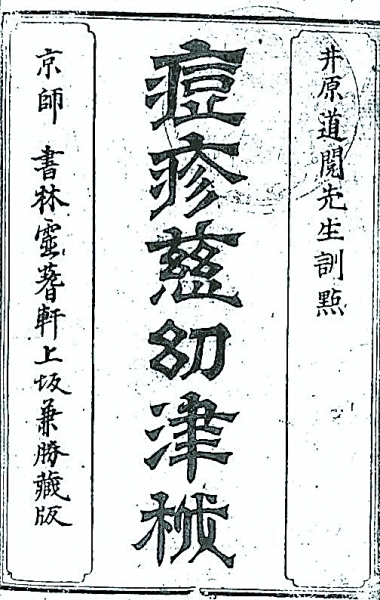 井原道閱先生訓點
痘疹慈幼津筏
京師 書林靈蓍軒上坂兼勝藏版